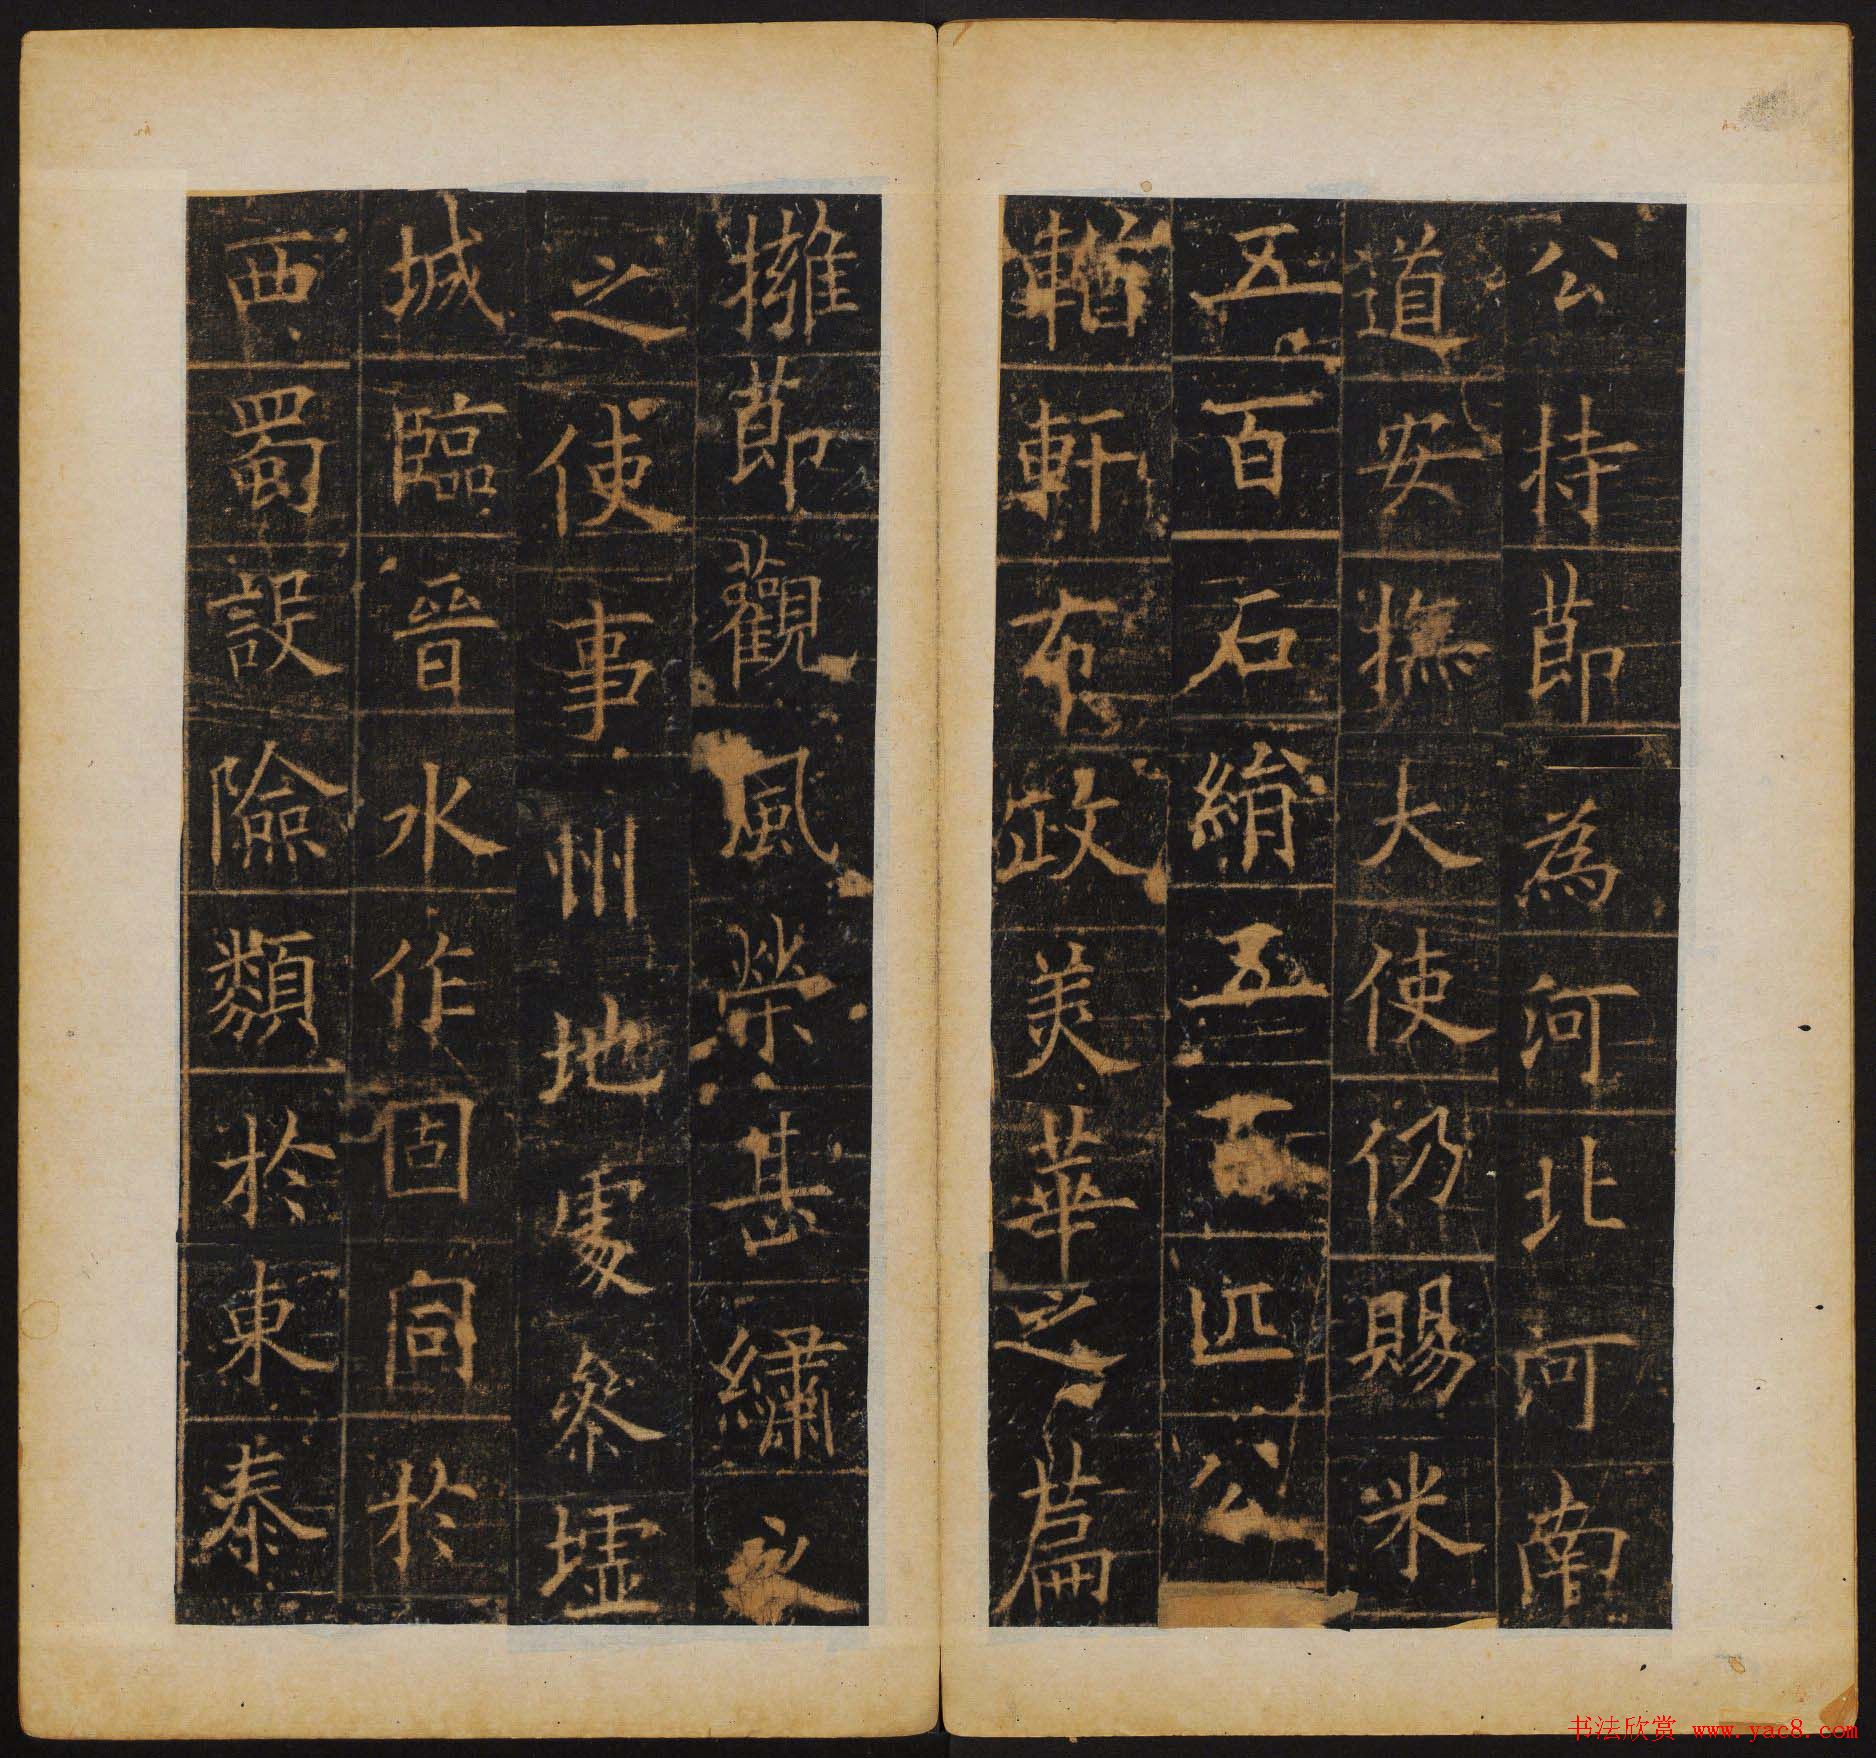 公持節為河北河南
道安撫大使仍賜米
五百石絹五百匹公
轀軒布政美華之篇
擁節觀風榮甚繡衣
之使事州地處參墟
城臨晉水作固同於
西蜀設險類於東秦
书法欣赏 www.yac8.com